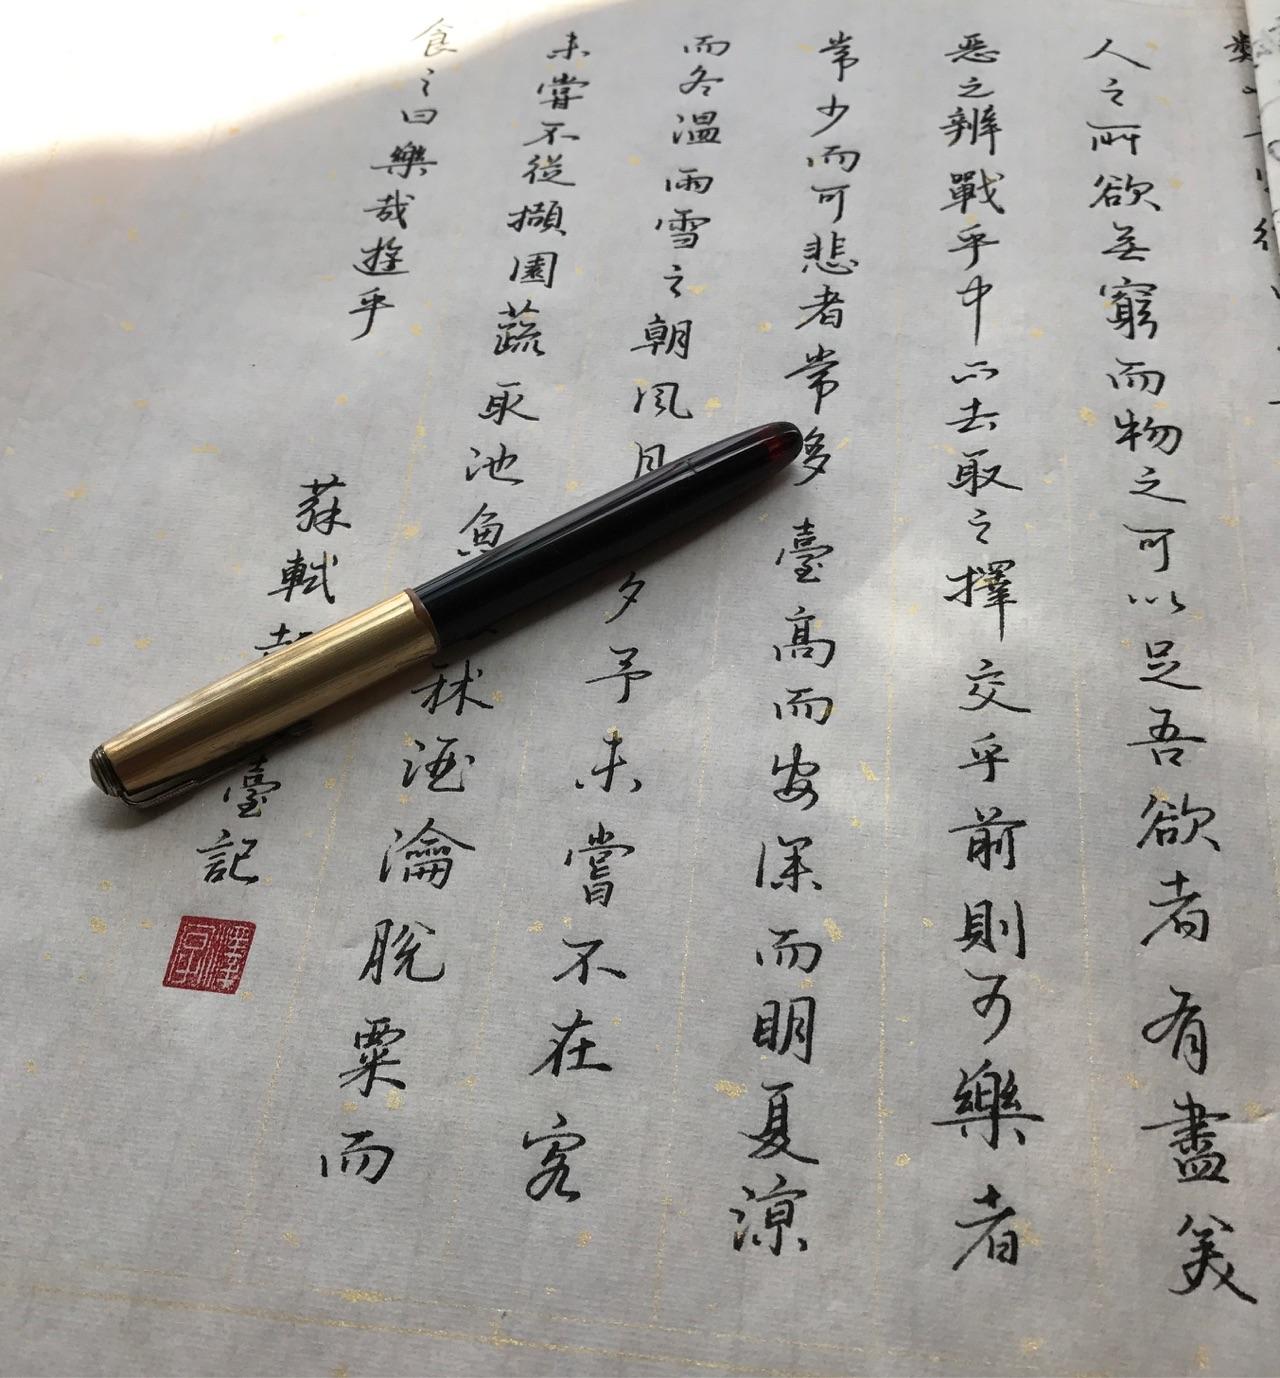 人之所欲無窮而物之可以足吾欲者有盡美
惡之辨戰乎中而去取之擇交乎前則可樂者
常少而可悲者常多臺高而安深而明夏涼
而冬溫雨雪之朝風月夕予未嘗不在客
未嘗不從擷園蔬取池魚秫酒瀹脫粟而
食之曰樂哉遊乎
蘇軾超臺記